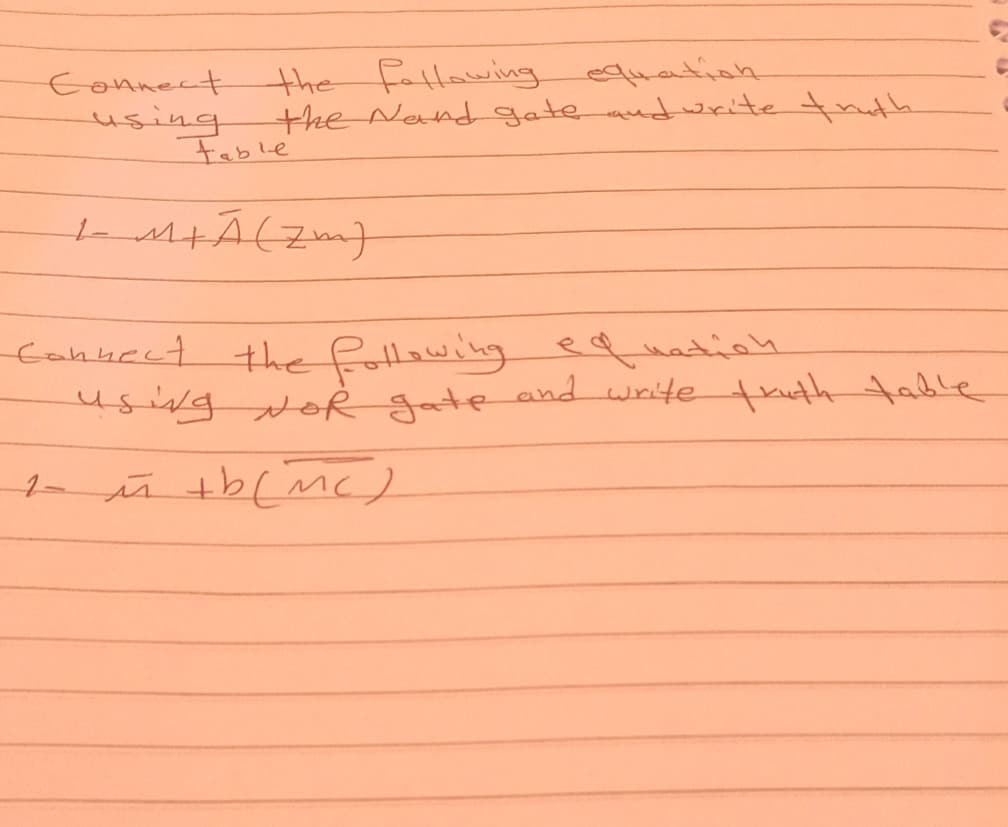 Connect the following equation
using the Nand gate and write truth
table
1- M+Ā(Zm)
Connect the following equation
using NOR gate and write truth table
1- m̄ +b(M̅C̅)